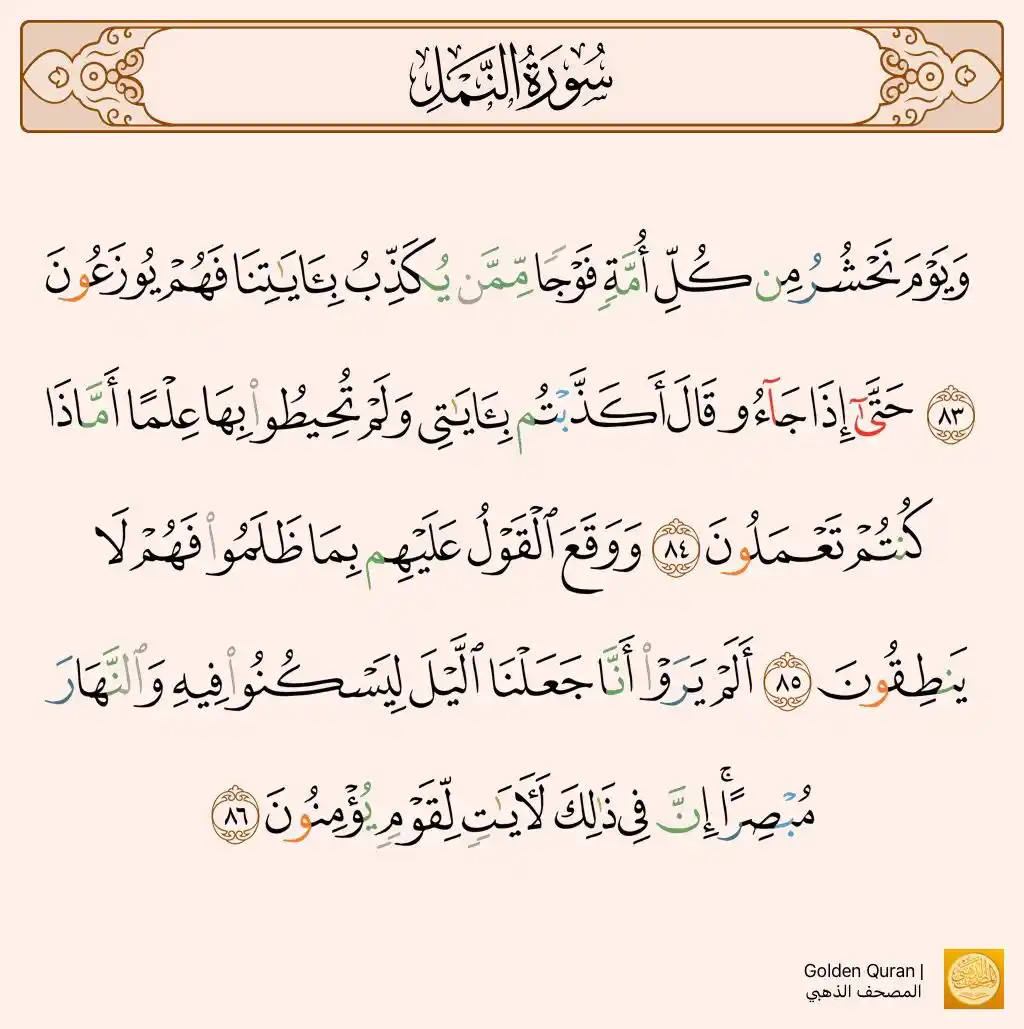 سُورَةُ النَّمْلِ
وَيَوْمَ نَحْشُرُ مِن كُلِّ أُمَّةٍ فَوْجًا مِّمَّن يُكَذِّبُ بِـَٔايَـٰتِنَا فَهُمْ يُوزَعُونَ
٨٣ حَتَّىٰٓ إِذَا جَآءُو قَالَ أَكَذَّبْتُم بِـَٔايَـٰتِى وَلَمْ تُحِيطُوا۟ بِهَا عِلْمًا أَمَّاذَا
كُنتُمْ تَعْمَلُونَ ٨٤ وَوَقَعَ ٱلْقَوْلُ عَلَيْهِم بِمَا ظَلَمُوا۟ فَهُمْ لَا
يَنطِقُونَ ٨٥ أَلَمْ يَرَوْا۟ أَنَّا جَعَلْنَا ٱلَّيْلَ لِيَسْكُنُوا۟ فِيهِ وَٱلنَّهَارَ
مُبْصِرًا ۚ إِنَّ فِى ذَٰلِكَ لَـَٔايَـٰتٍ لِّقَوْمٍ يُؤْمِنُونَ ٨٦
Golden Quran |
المصحف الذهبي